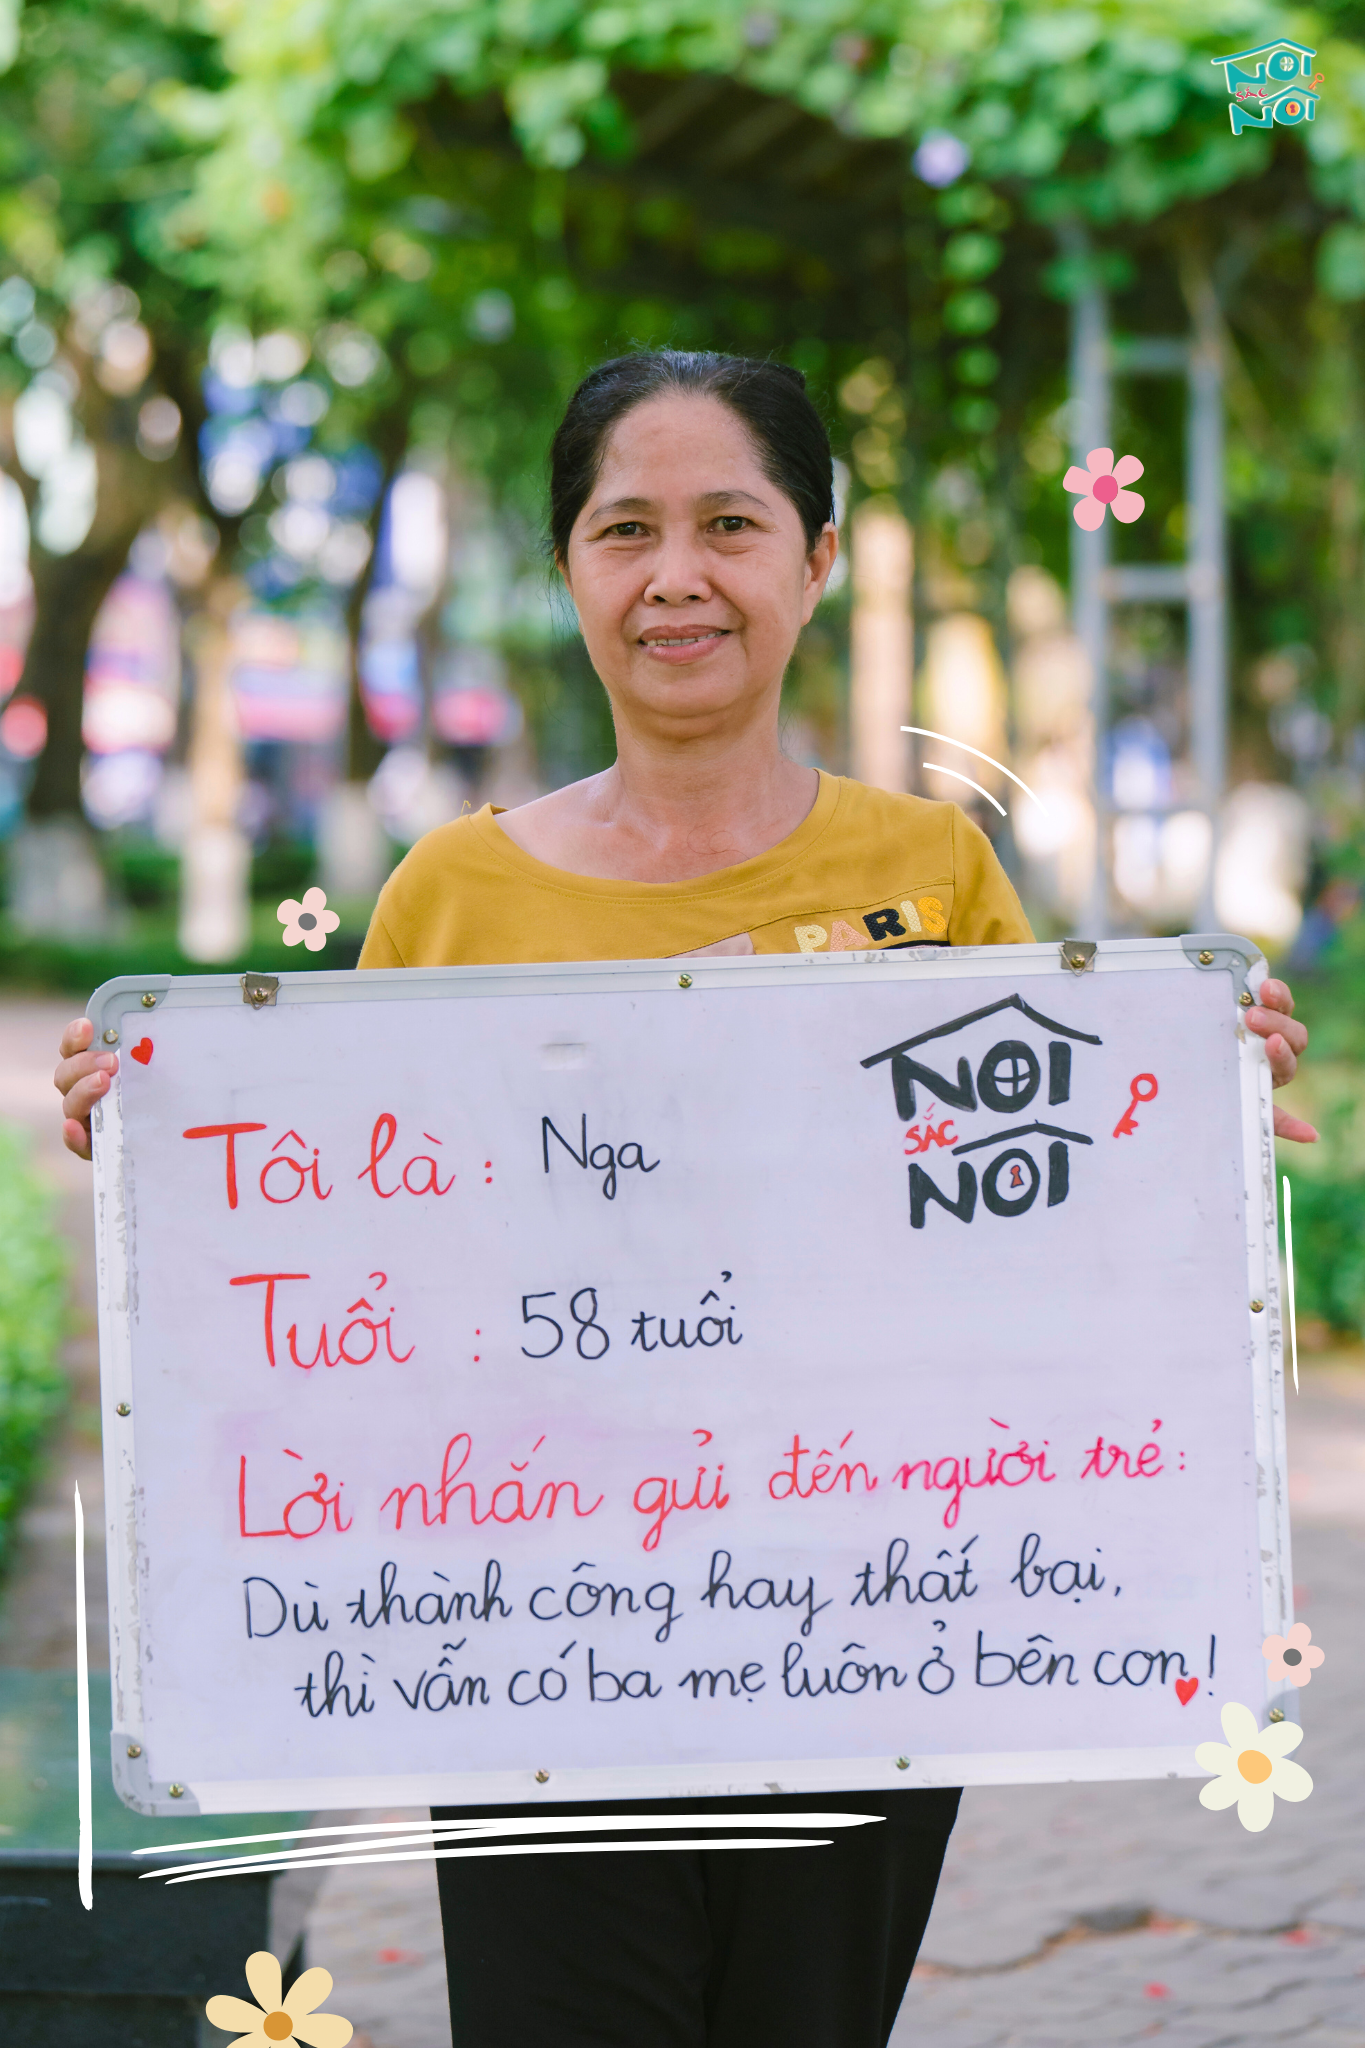 NOI
SẮC
NOI
PARIS
NOI
SẮC
NOI
Tôi là : Nga
Tuổi : 58 tuổi
Lời nhắn gửi đến người trẻ:
Dù thành công hay thất bại,
thì vẫn có ba mẹ luôn ở bên con!